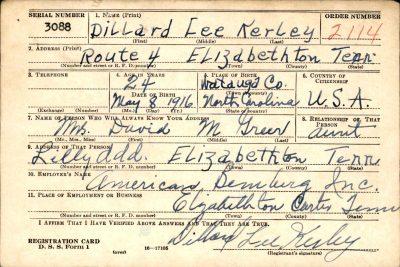 SERIAL NUMBER 1. NAME (Print) ORDER NUMBER
3088 Dillard Lee Kerley 2114
(First) (Middle) (Last)
2. ADDRESS (Print)
Route 4 Elizabethton Tenn
(Number and street or R. F. D. number) (Town) (County) (State)
3. TELEPHONE 4. AGE IN YEARS 5. PLACE OF BIRTH 6. COUNTRY OF CITIZENSHIP
24 Watauga Co.
DATE OF BIRTH (Town or county)
May 8, 1916 North Carolina U.S.A.
(Exchange) (Number) (Mo.) (Day) (Yr.) (State or country)
7. NAME OF PERSON WHO WILL ALWAYS KNOW YOUR ADDRESS 8. RELATIONSHIP OF THAT PERSON
Mrs. David M Greer aunt
(Mr., Mrs., Miss) (First) (Middle) (Last)
9. ADDRESS OF THAT PERSON
Lilly Add. Elizabethton Tenn
(Number and street or R. F. D. number) (Town) (County) (State)
10. EMPLOYER'S NAME
American Bemberg Inc.
11. PLACE OF EMPLOYMENT OR BUSINESS
Elizabethton Carter Tenn
(Number and street or R. F. D. number) (Town) (County) (State)
I AFFIRM THAT I HAVE VERIFIED ABOVE ANSWERS AND THAT THEY ARE TRUE.
REGISTRATION CARD Dillard Lee Kerley
D. S. S. Form 1 (over) 16—17105 (Registrant's signature)